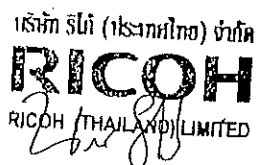 บริษัท ริโก้ (ประเทศไทย) จำกัด
RICOH
RICOH (THAILAND) LIMITED